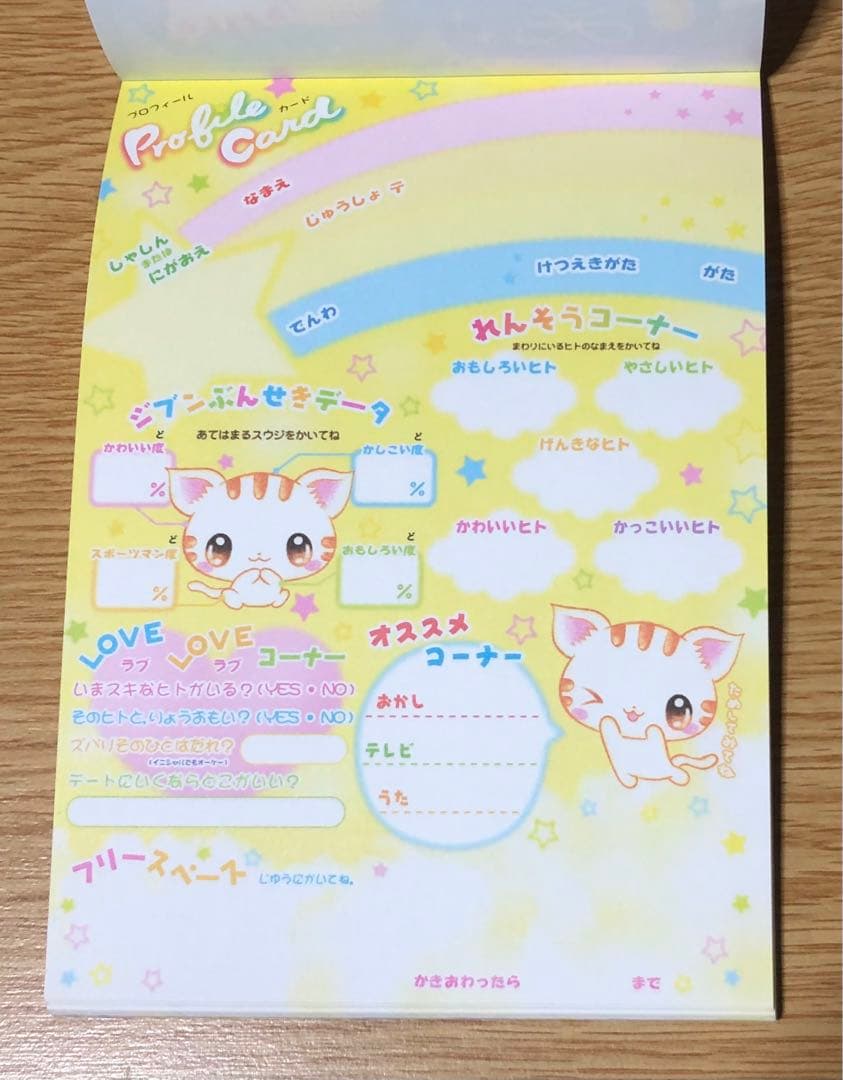 プロフィール カード
Profile Card
なまえ
じゅうしょ 〒
しゃしん
または
にがおえ
でんわ
けつえきがた
がた
れんそうコーナー
まわりにいるヒトのなまえをかいてね
おもしろいヒト
やさしいヒト
げんきなヒト
かわいいヒト
かっこいいヒト
ジブンぶんせきデータ
あてはまるスウジをかいてね
ど
かわいい度
%
ど
かしこい度
%
ど
スポーツマン度
%
ど
おもしろい度
%
LOVE LOVE コーナー
ラブ ラブ
いまスキなヒトがいる?(YES・NO)
そのヒトと、りょうおもい?(YES・NO)
ズバリそのひとはだれ?
(イニシャルでもオーケー)
デートにいくならどこがいい?
オススメ
コーナー
おかし
テレビ
うた
ためしてみてね
フリースペース
じゆうにかいてね。
かきおわったら
まで